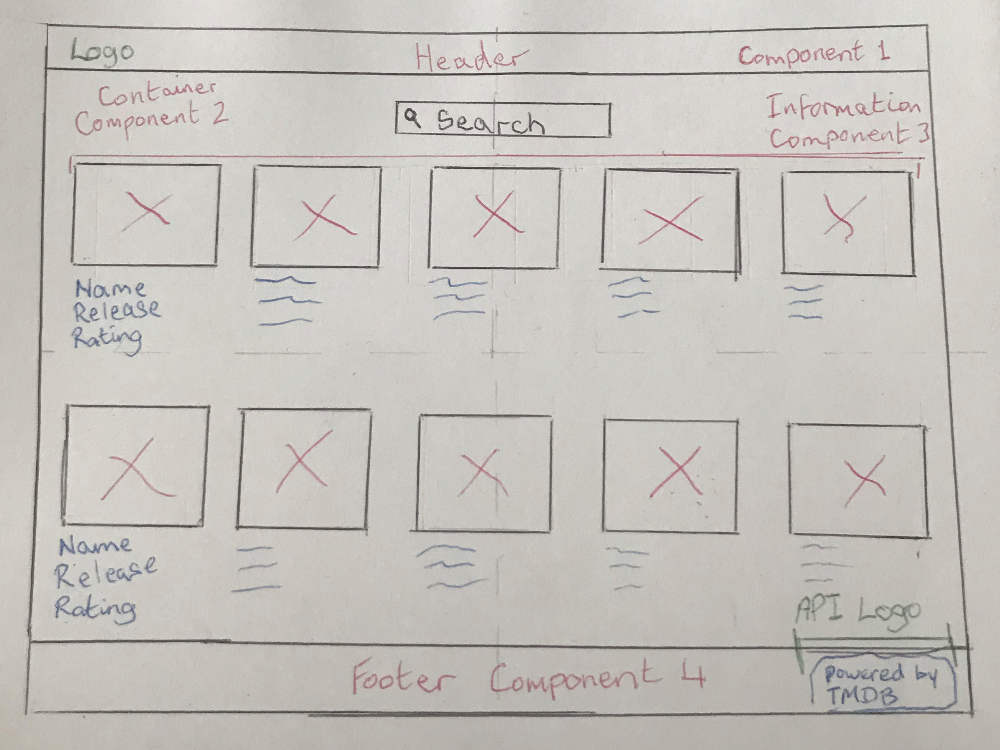 Logo
Header
Component 1
Container
Component 2
Search
Information
Component 3
Name
Release
Rating
Name
Release
Rating
API Logo
Footer Component 4
powered by
TMDB